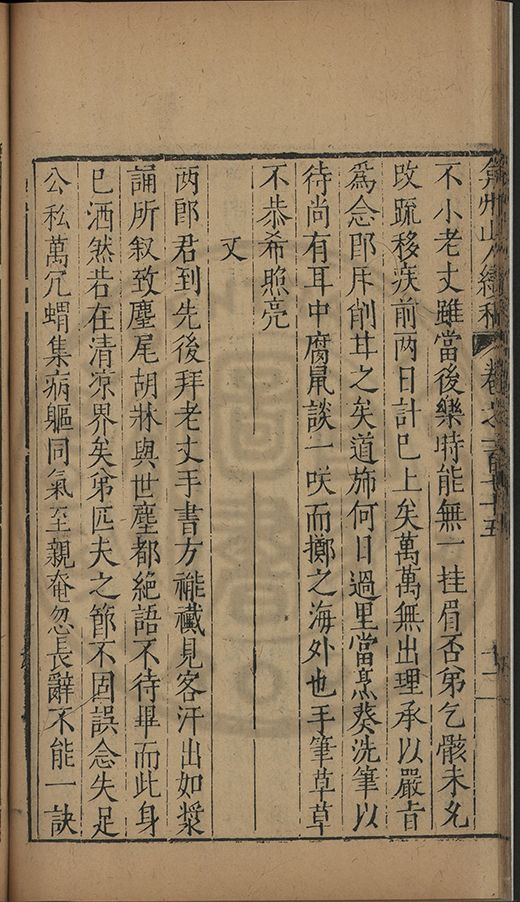 弇州山人續稿 卷之一百七十五 十二
不小老丈雖當後樂時能無一挂眉否弟乞骸未允
改疏移疾前两日計已上矣萬萬無出理承以嚴旨
爲念即斥削甘之矣道斾何日過里當烹葵洗筆以
待尚有耳中腐鼠談一咲而擲之海外也手筆草草
不恭希照亮
又
两郎君到先後拜老丈手書方襶見客汗出如漿
誦所叙致麈尾胡牀與世塵都絶語不待畢而此身
已洒然若在清凉界矣弟匹夫之節不固誤念失足
公私萬冗蝟集病軀同氣至親奄忽長辭不能一訣